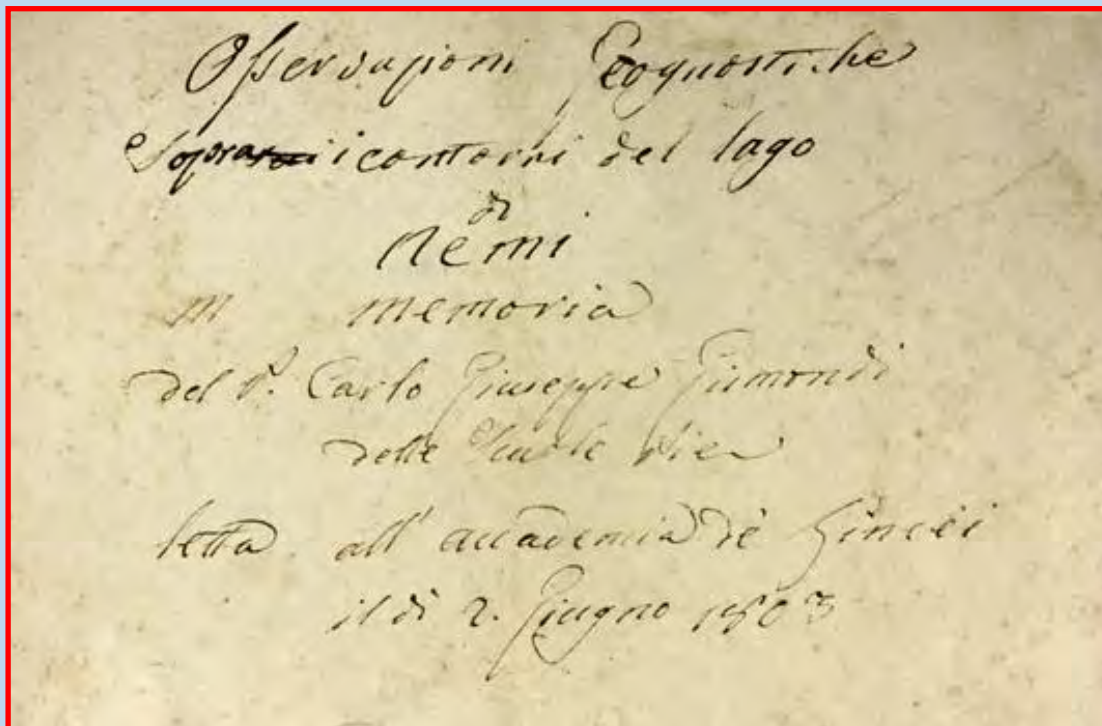 Osservazioni Geognostiche
Sopra i contorni del lago
di
Nemi
memoria
del P. Carlo Giuseppe Gismondi
delle Scuole Pie
letta all' accademia de' Lincei
il dì 2. Giugno 1803